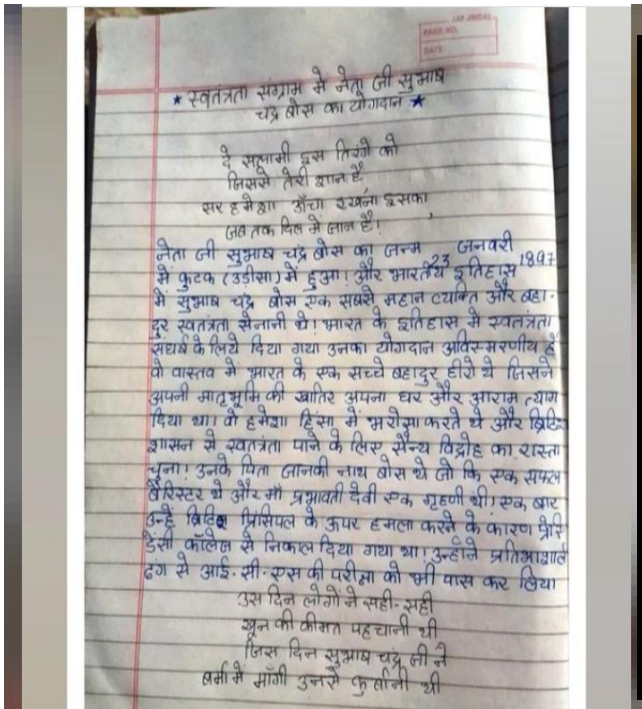 JAY JINDAL
PAGE NO.
DATE
★ स्वतंत्रता संग्राम मे नेता जी सुभाष
चंद्र बोस का योगदान ★
दे सलामी इस तिरंगे को
जिससे तेरी शान है
सर हमेशा ऊँचा रखना इसका
जब तक दिल में जान है!
नेता जी सुभाष चंद्र बोस का जन्म 23 जनवरी 1897
में कुटक (उड़ीसा) में हुआ। और भारतीय इतिहास
में सुभाष चंद्र बोस एक सबसे महान व्यक्ति और बहा-
दुर स्वतंत्रता सेनानी थे। भारत के इतिहास मे स्वतंत्रता
संघर्ष के लिये दिया गया उनका योगदान अविस्मरणीय है
वो वास्तव मे भारत के एक सच्चे बहादुर हीरो थे जिसने
अपनी मातृभूमि की खातिर अपना घर और आराम त्याग
दिया था। वो हमेशा हिंसा में भरोसा करते थे और ब्रिटिश
शासन से स्वतंत्रता पाने के लिए सैन्य विद्रोह का रास्ता
चुना। उनके पिता जानकी नाथ बोस थे जो कि एक सफल
बैरिस्टर थे और माँ प्रभावती देवी एक गृहणी थी। एक बार
उन्हें ब्रिटिश प्रिंसिपल के ऊपर हमला करने के कारण प्रेसि
डेंसी कॉलेज से निकाल दिया गया था। उन्होंने प्रतिभाशाली
ढंग से आई. सी. एस की परीक्षा को भी पास कर लिया
उस दिन लोगो ने सही-सही
खून की कीमत पहचानी थी
जिस दिन सुभाष चंद्र जी ने
बर्मा में माँगी उनसे कुर्बानी थी